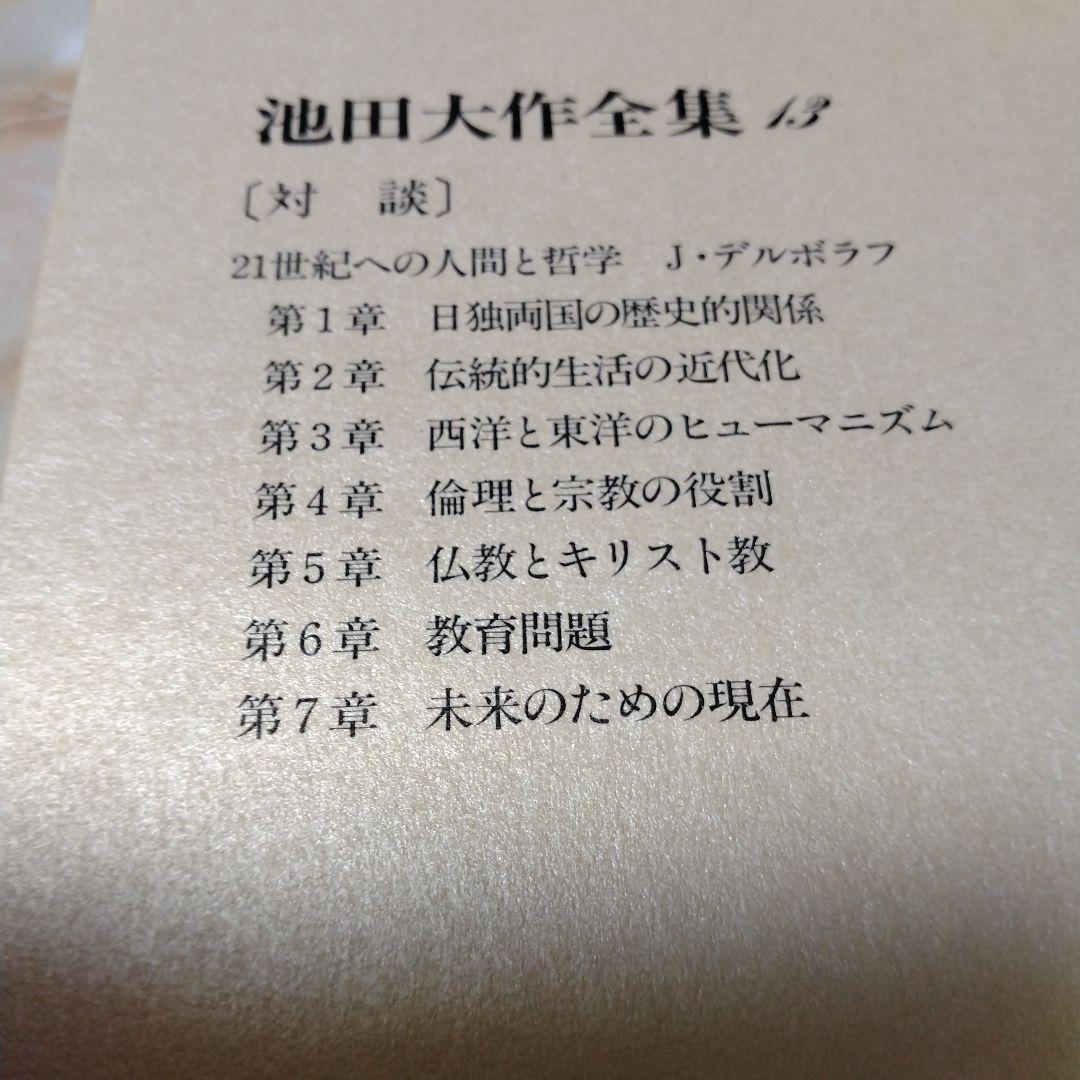 池田大作全集 13
〔対　談〕
21世紀への人間と哲学　J・デルボラフ
第1章　日独両国の歴史的関係
第2章　伝統的生活の近代化
第3章　西洋と東洋のヒューマニズム
第4章　倫理と宗教の役割
第5章　仏教とキリスト教
第6章　教育問題
第7章　未来のための現在